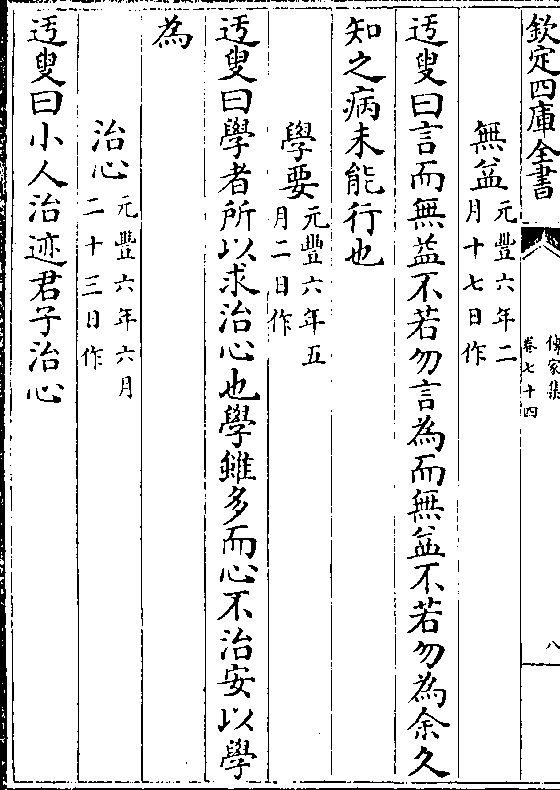 欽定四庫全書
傳家集
卷七十四
八
無益元豐六年二
月十七日作
迃叟曰言而無益不若勿言為而無益不若勿為余久
知之病未能行也
學要元豐六年五
月二日作
迃叟曰學者所以求治心也學雖多而心不治安以學
為
治心元豐六年六月
二十三日作
迃叟曰小人治迹君子治心